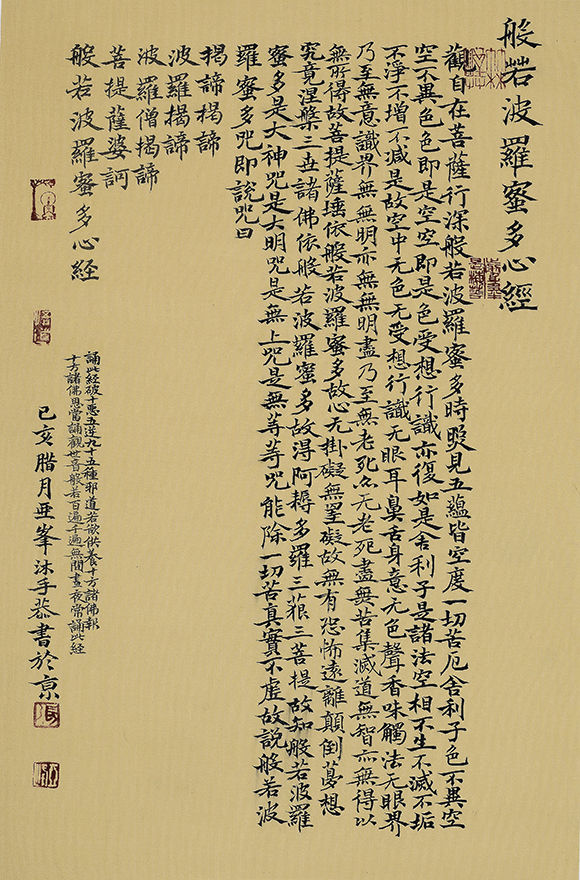 般若波羅蜜多心經
觀自在菩薩行深般若波羅蜜多時照見五蘊皆空度一切苦厄舍利子色不異空
空不異色色即是空空即是色受想行識亦復如是舍利子是諸法空相不生不滅不垢
不淨不增不減是故空中无色无受想行識无眼耳鼻舌身意无色聲香味觸法无眼界
乃至無意識界無無明亦無無明盡乃至無老死亦无老死盡無苦集滅道無智亦無得以
無所得故菩提薩埵依般若波羅蜜多故心无掛礙無罣礙故無有恐怖遠離顛倒夢想
究竟涅槃三世諸佛依般若波羅蜜多故得阿耨多羅三藐三菩提故知般若波羅
蜜多是大神咒是大明咒是無上咒是無等等咒能除一切苦真實不虛故說般若波
羅蜜多咒即說咒曰
揭諦揭諦
波羅揭諦
波羅僧揭諦
菩提薩婆訶
般若波羅蜜多心經
誦此經破十惡五逆九十五種邪道若欲供養十方諸佛報
十方諸佛恩當誦觀世音般若百遍千遍無間晝夜常誦此經
己亥腊月亞峯沐手恭書於京